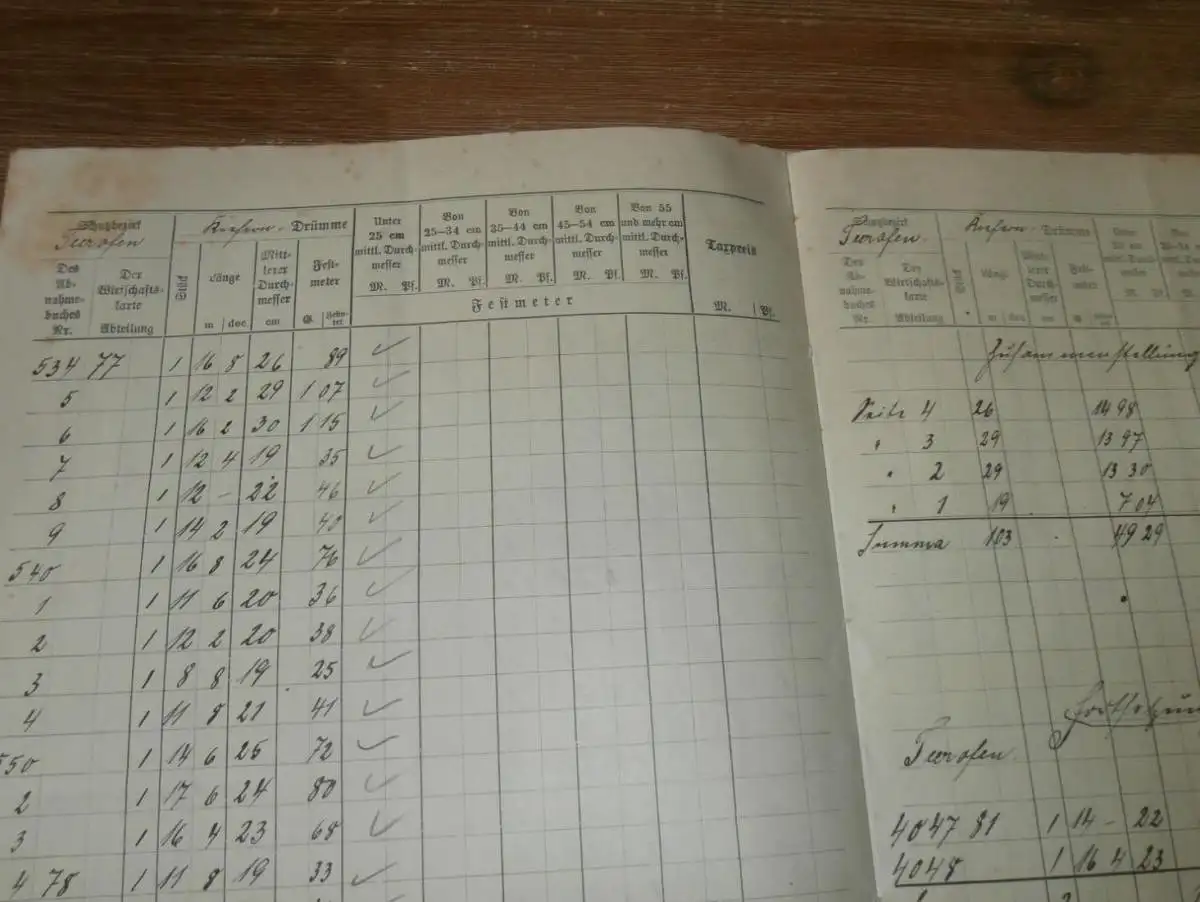 Schutzbezirk Teerofen
Kiefern - Drümme
Des Abnahmebuches Nr.
Der Wirtschaftskarte Abteilung
Stück
Länge m dec
Mittlerer Durchmesser cm
Festmeter G.
Unter 25 cm mittl. Durchmesser M. Pf.
Von 25–34 cm mittl. Durchmesser M. Pf.
Von 35–44 cm mittl. Durchmesser M. Pf.
Von 45–54 cm mittl. Durchmesser M. Pf.
Von 55 und mehr cm mittl. Durchmesser M. Pf.
Festmeter
Taxpreis M. Pf.
534 77 1 16 8 26 89 ✓
5 1 12 2 29 1 07 ✓
6 1 16 2 30 1 15 ✓
7 1 12 4 19 35 ✓
8 1 12 – 22 46 ✓
9 1 14 2 19 40 ✓
540 1 16 8 24 76 ✓
1 1 11 6 20 36 ✓
2 1 12 2 20 38 ✓
3 1 8 8 19 25 ✓
4 1 11 8 21 41 ✓
550 1 14 6 25 72 ✓
2 1 17 6 24 80 ✓
3 1 16 4 23 68 ✓
4 78 1 11 8 19 33 ✓
Schutzbezirk Teerofen.
Kiefern - Drümme
Des Abnahmebuches Nr.
Der Wirtschaftskarte Abteilung
Stück
Länge m dec
Mittlerer Durchmesser cm
Festmeter G.
Zusammenstellung
Seite 4 26 14 98
" 3 29 13 97
" 2 29 13 30
" 1 19 7 04
Summa 103 49 29
Teerofen.
4047 81 1 14 – 22
4048 1 16 4 23